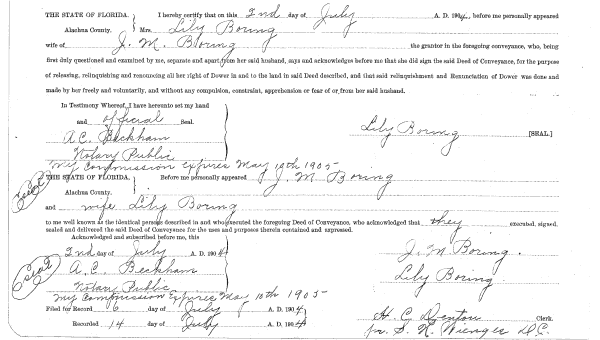 THE STATE OF FLORIDA, I hereby certify that on this 2nd day of July A. D. 1904, before me personally appeared
Alachua County. Mrs. Lily Boring
wife of J. M. Boring the grantor in the foregoing conveyance, who, being
first duly questioned and examined by me, separate and apart from her said husband, says and acknowledges before me that she did sign the said Deed of Conveyance, for the purpose
of releasing, relinquishing and renouncing all her right of Dower in and to the land in said Deed described, and that said relinquishment and Renunciation of Dower was done and
made by her freely and voluntarily, and without any compulsion, constraint, apprehension or fear of or from her said husband.
In Testimony Whereof, I have hereunto set my hand
and official Seal.
A. C. Beckham
Lily Boring [SEAL.]
Notary Public
My Commission expires May 10th 1905
Seal
THE STATE OF FLORIDA, Before me personally appeared J. M. Boring
Alachua County.
and wife Lily Boring
to me well known as the identical persons described in and who executed the foregoing Deed of Conveyance, who acknowledged that they executed, signed,
sealed and delivered the said Deed of Conveyance for the uses and purposes therein contained and expressed.
Acknowledged and subscribed before me, this
2nd day of July A. D. 1904
J. M Boring.
Seal
A. C. Beckham
Lily Boring.
Notary Public
My Commission Expires May 10th 1905
Filed for Record 6 day of July A. D. 1904.
H. C. Denton Clerk.
Recorded 14 day of July A. D. 1904
per S. H. Wienges D.C.